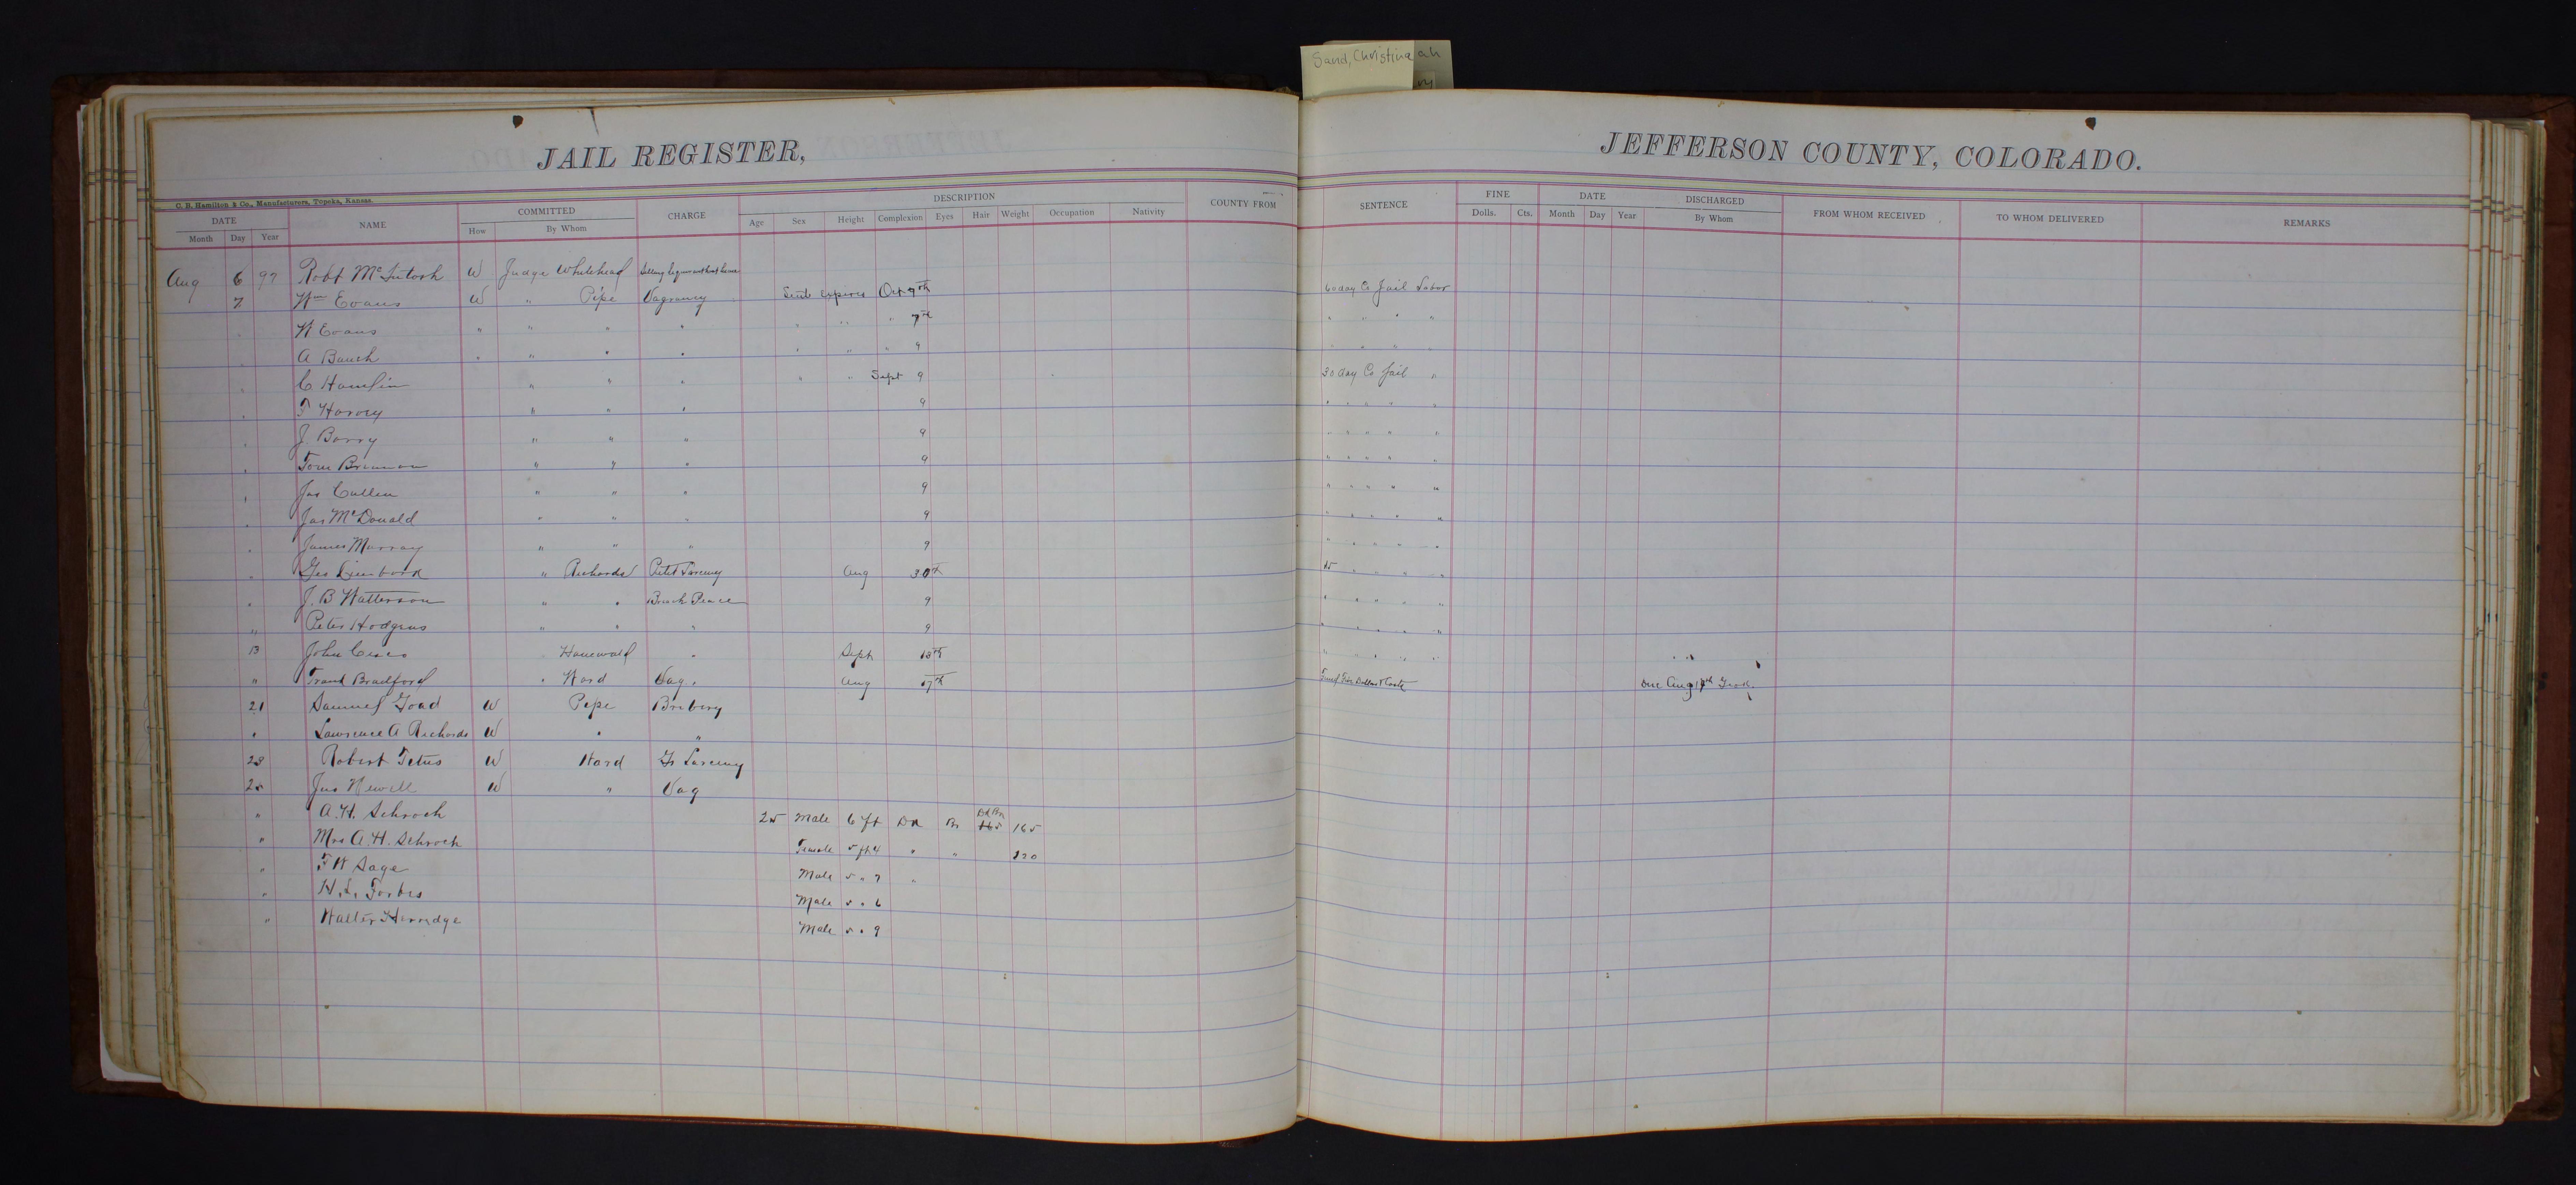 Sand, Christina ah
JAIL REGISTER,
JEFFERSON COUNTY, COLORADO.
C. B. Hamilton & Co., Manufacturers, Topeka, Kansas.
DATE NAME COMMITTED CHARGE DESCRIPTION COUNTY FROM SENTENCE FINE DATE DISCHARGED FROM WHOM RECEIVED TO WHOM DELIVERED REMARKS
Month Day Year How By Whom Age Sex Height Complexion Eyes Hair Weight Occupation Nativity Dolls. Cts. Month Day Year By Whom
Aug 6 97 Robt McIntosh W Judge Whitehead Selling liquor without license
7 Wm Evans W " Pepe Vagrancy expires Oct 9th 60 day Co Jail Labor
W Evans " " " " " " " 7th " " " "
A Bauch " " " " " " " 9 " " " "
C Hamlin " " " " " Sept 9 30 day Co Jail "
F Harvey " " " 9 " " " " "
J. Barry " " " 9 " " " " "
Tom Brennan " " " 9 " " " " "
Jas Cullen " " " 9 " " " " "
Jas McDonald " " " 9 " " " " "
James Murray " " " 9 " " " " "
Geo " Richards Petit Larceny Aug 30th 15 " " " "
J. B Watterson " " Breach Peace 9 " " " " "
" Peter Hodgens " " " 9 " " " " "
13 John Hanewald " Sept 13th " " " " "
" Frank Bradford " Ward Vag. Aug 17th Fined Five Dollars & Costs Due Aug 17th
21 Samuel Goad W Pepe Bribery
" Lawrence A Richards W " "
23 Robert Tetus W Ward Gr Larceny
25 Jas Newell W " Vag
" A. H. Schrock 25 Male 6 ft Dk Br Dk Br 165 165
" Mrs A. H. Schrock Female 5 ft 4 " " 120
" F W Sage Male 5 " 7 "
" H. L. Forbes Male 5 " 6
" Walter Herredge Male 5 " 9